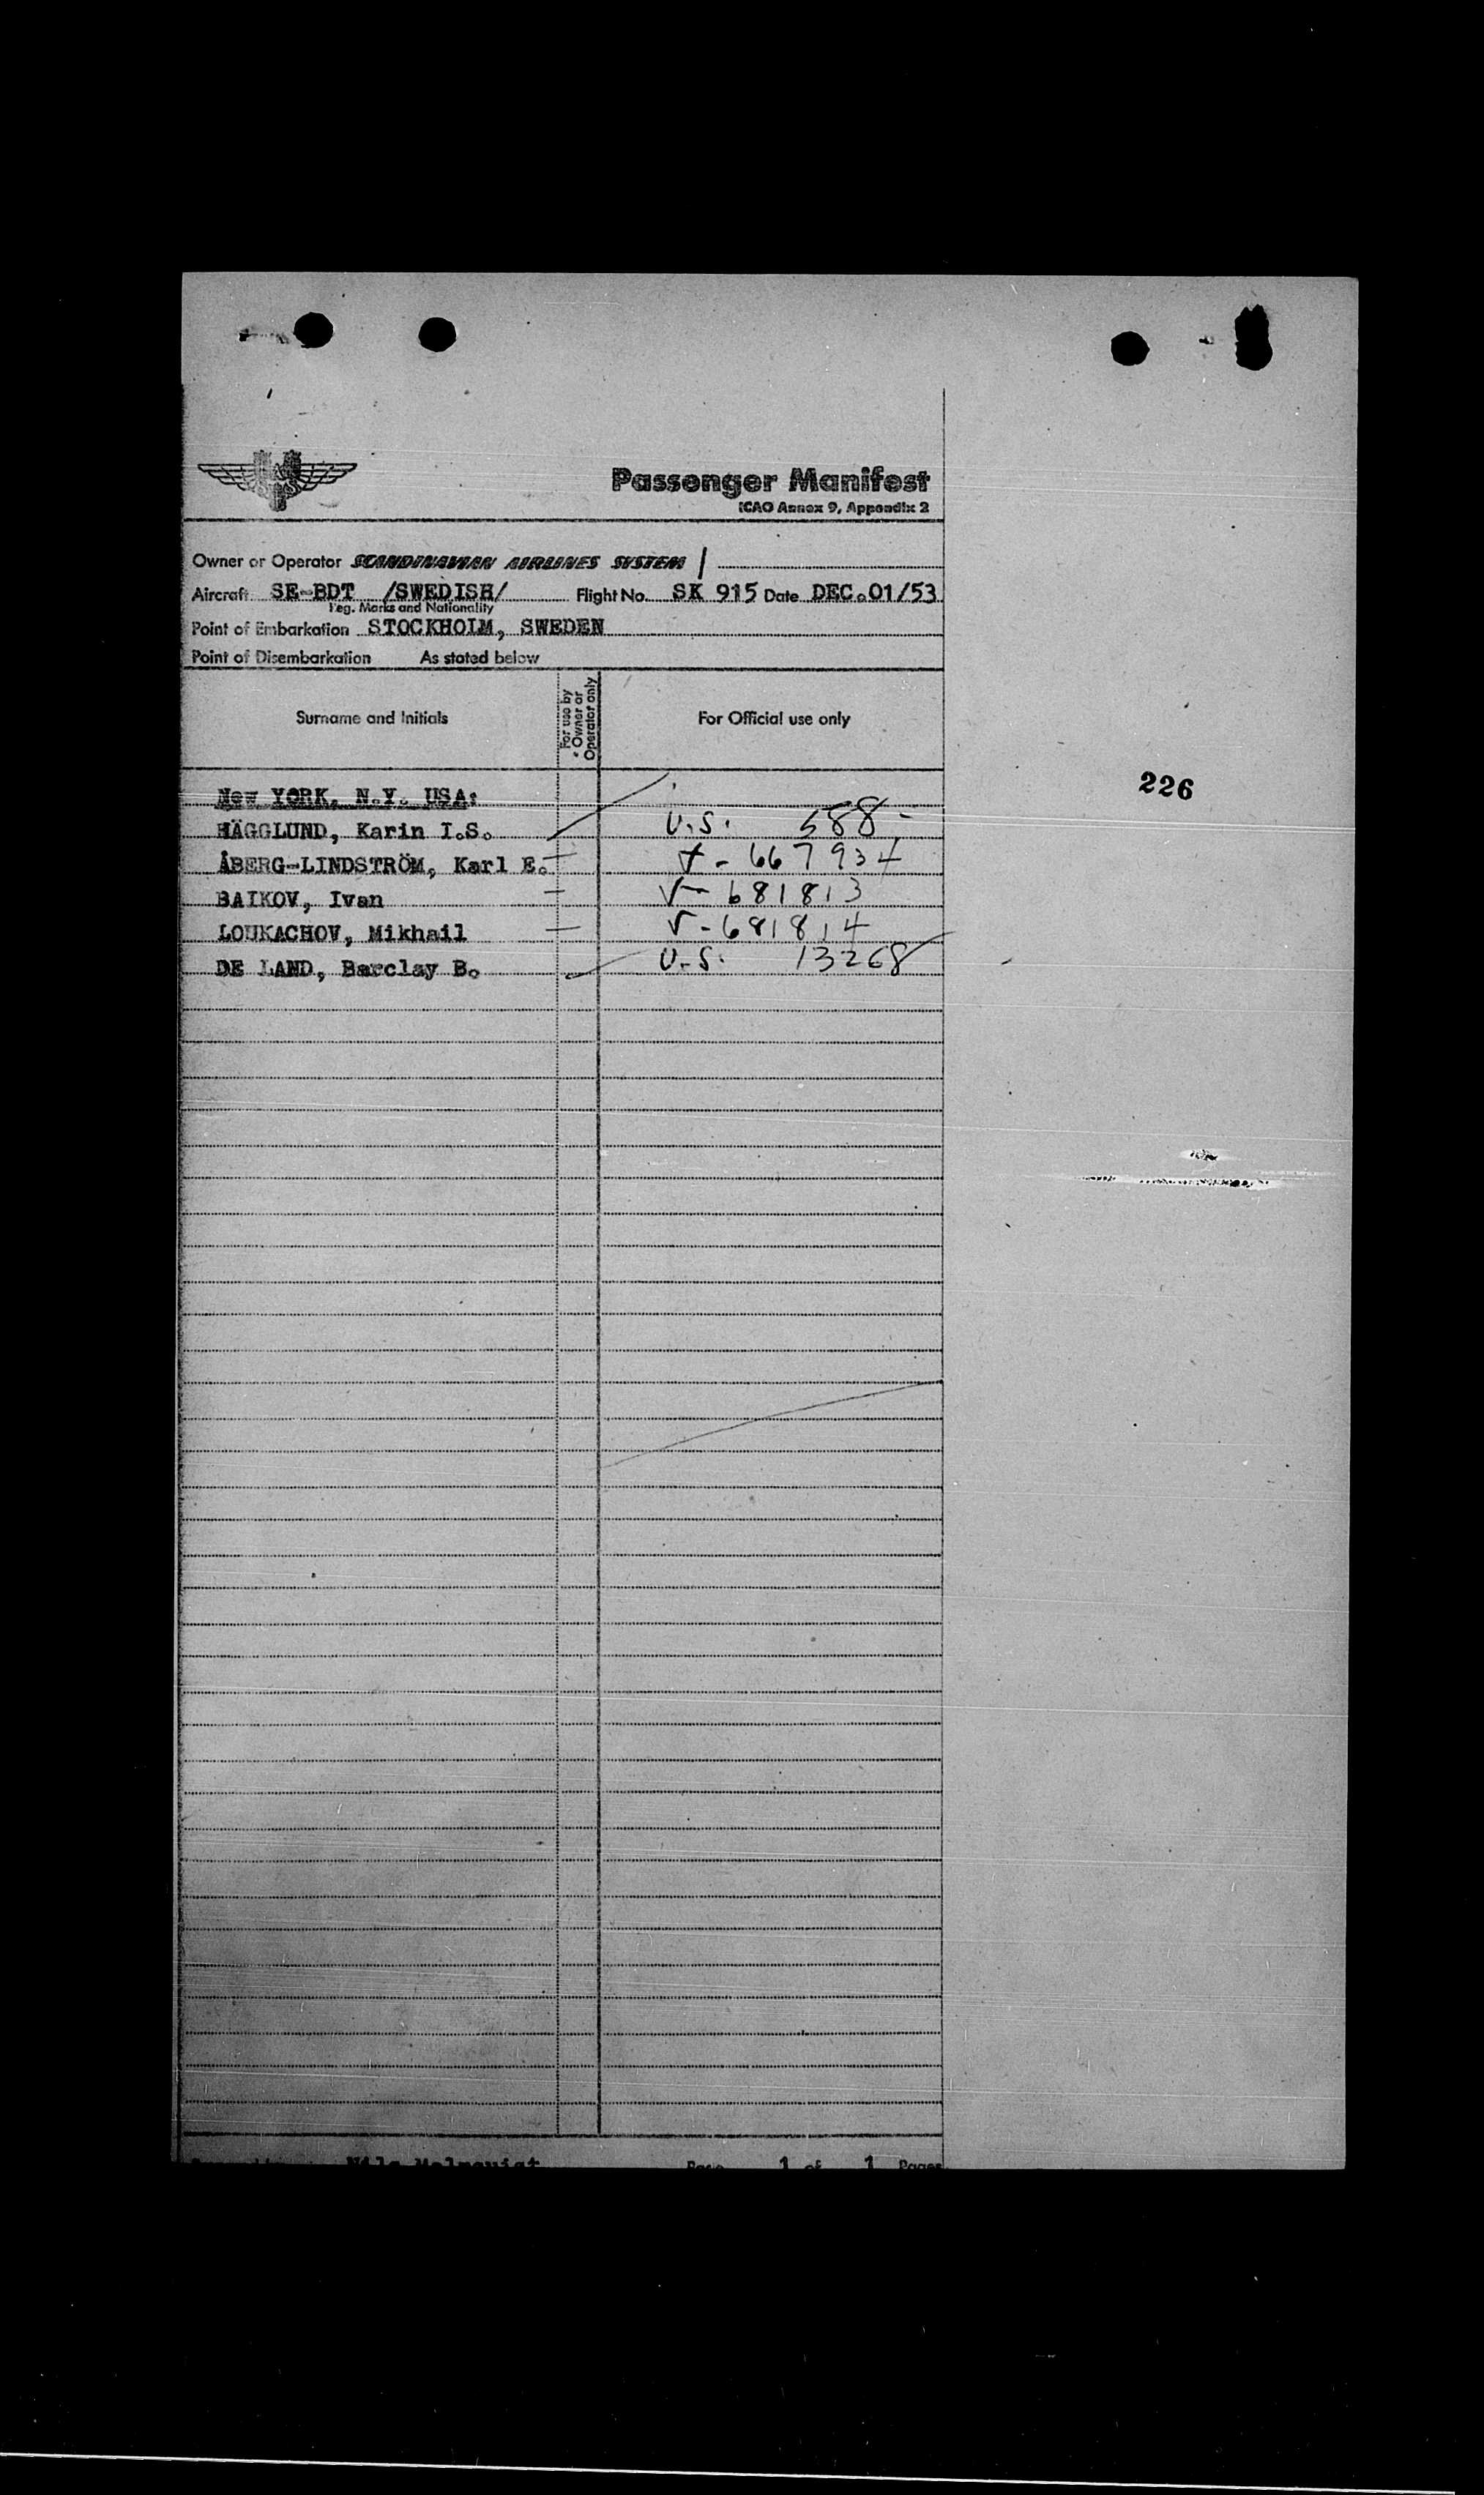 Passenger Manifest
ICAO Annex 9, Appendix 2
Owner or Operator SCANDINAVIAN AIRLINES SYSTEM
Aircraft SE-BDT /SWEDISH/ Flight No. SK 915 Date DEC.01/53
Reg. Marks and Nationality
Point of Embarkation STOCKHOLM, SWEDEN
Point of Disembarkation As stated below
Surname and Initials
For use by
Owner or
Operator only
For Official use only
New YORK, N.Y. USA:
226
HÄGGLUND, Karin I.S. U.S. 588-
ÅBERG-LINDSTRÖM, Karl E. V-667934
BAIKOV, Ivan V-681813
LOUKACHOV, Mikhail V-681814
DE LAND, Barclay B. U.S. 13268
Nils Malmquist Page 1 of 1 Pages